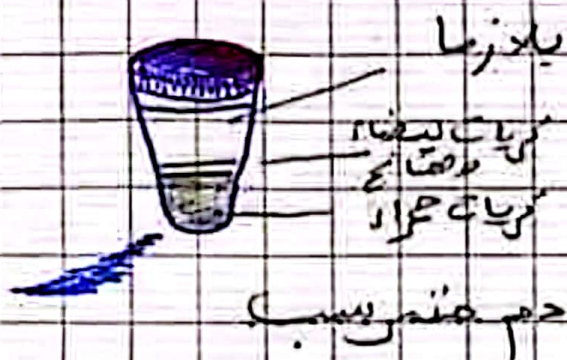 بلازما
كريات بيضاء
وصفائح
كريات حمراء
دم مترسب